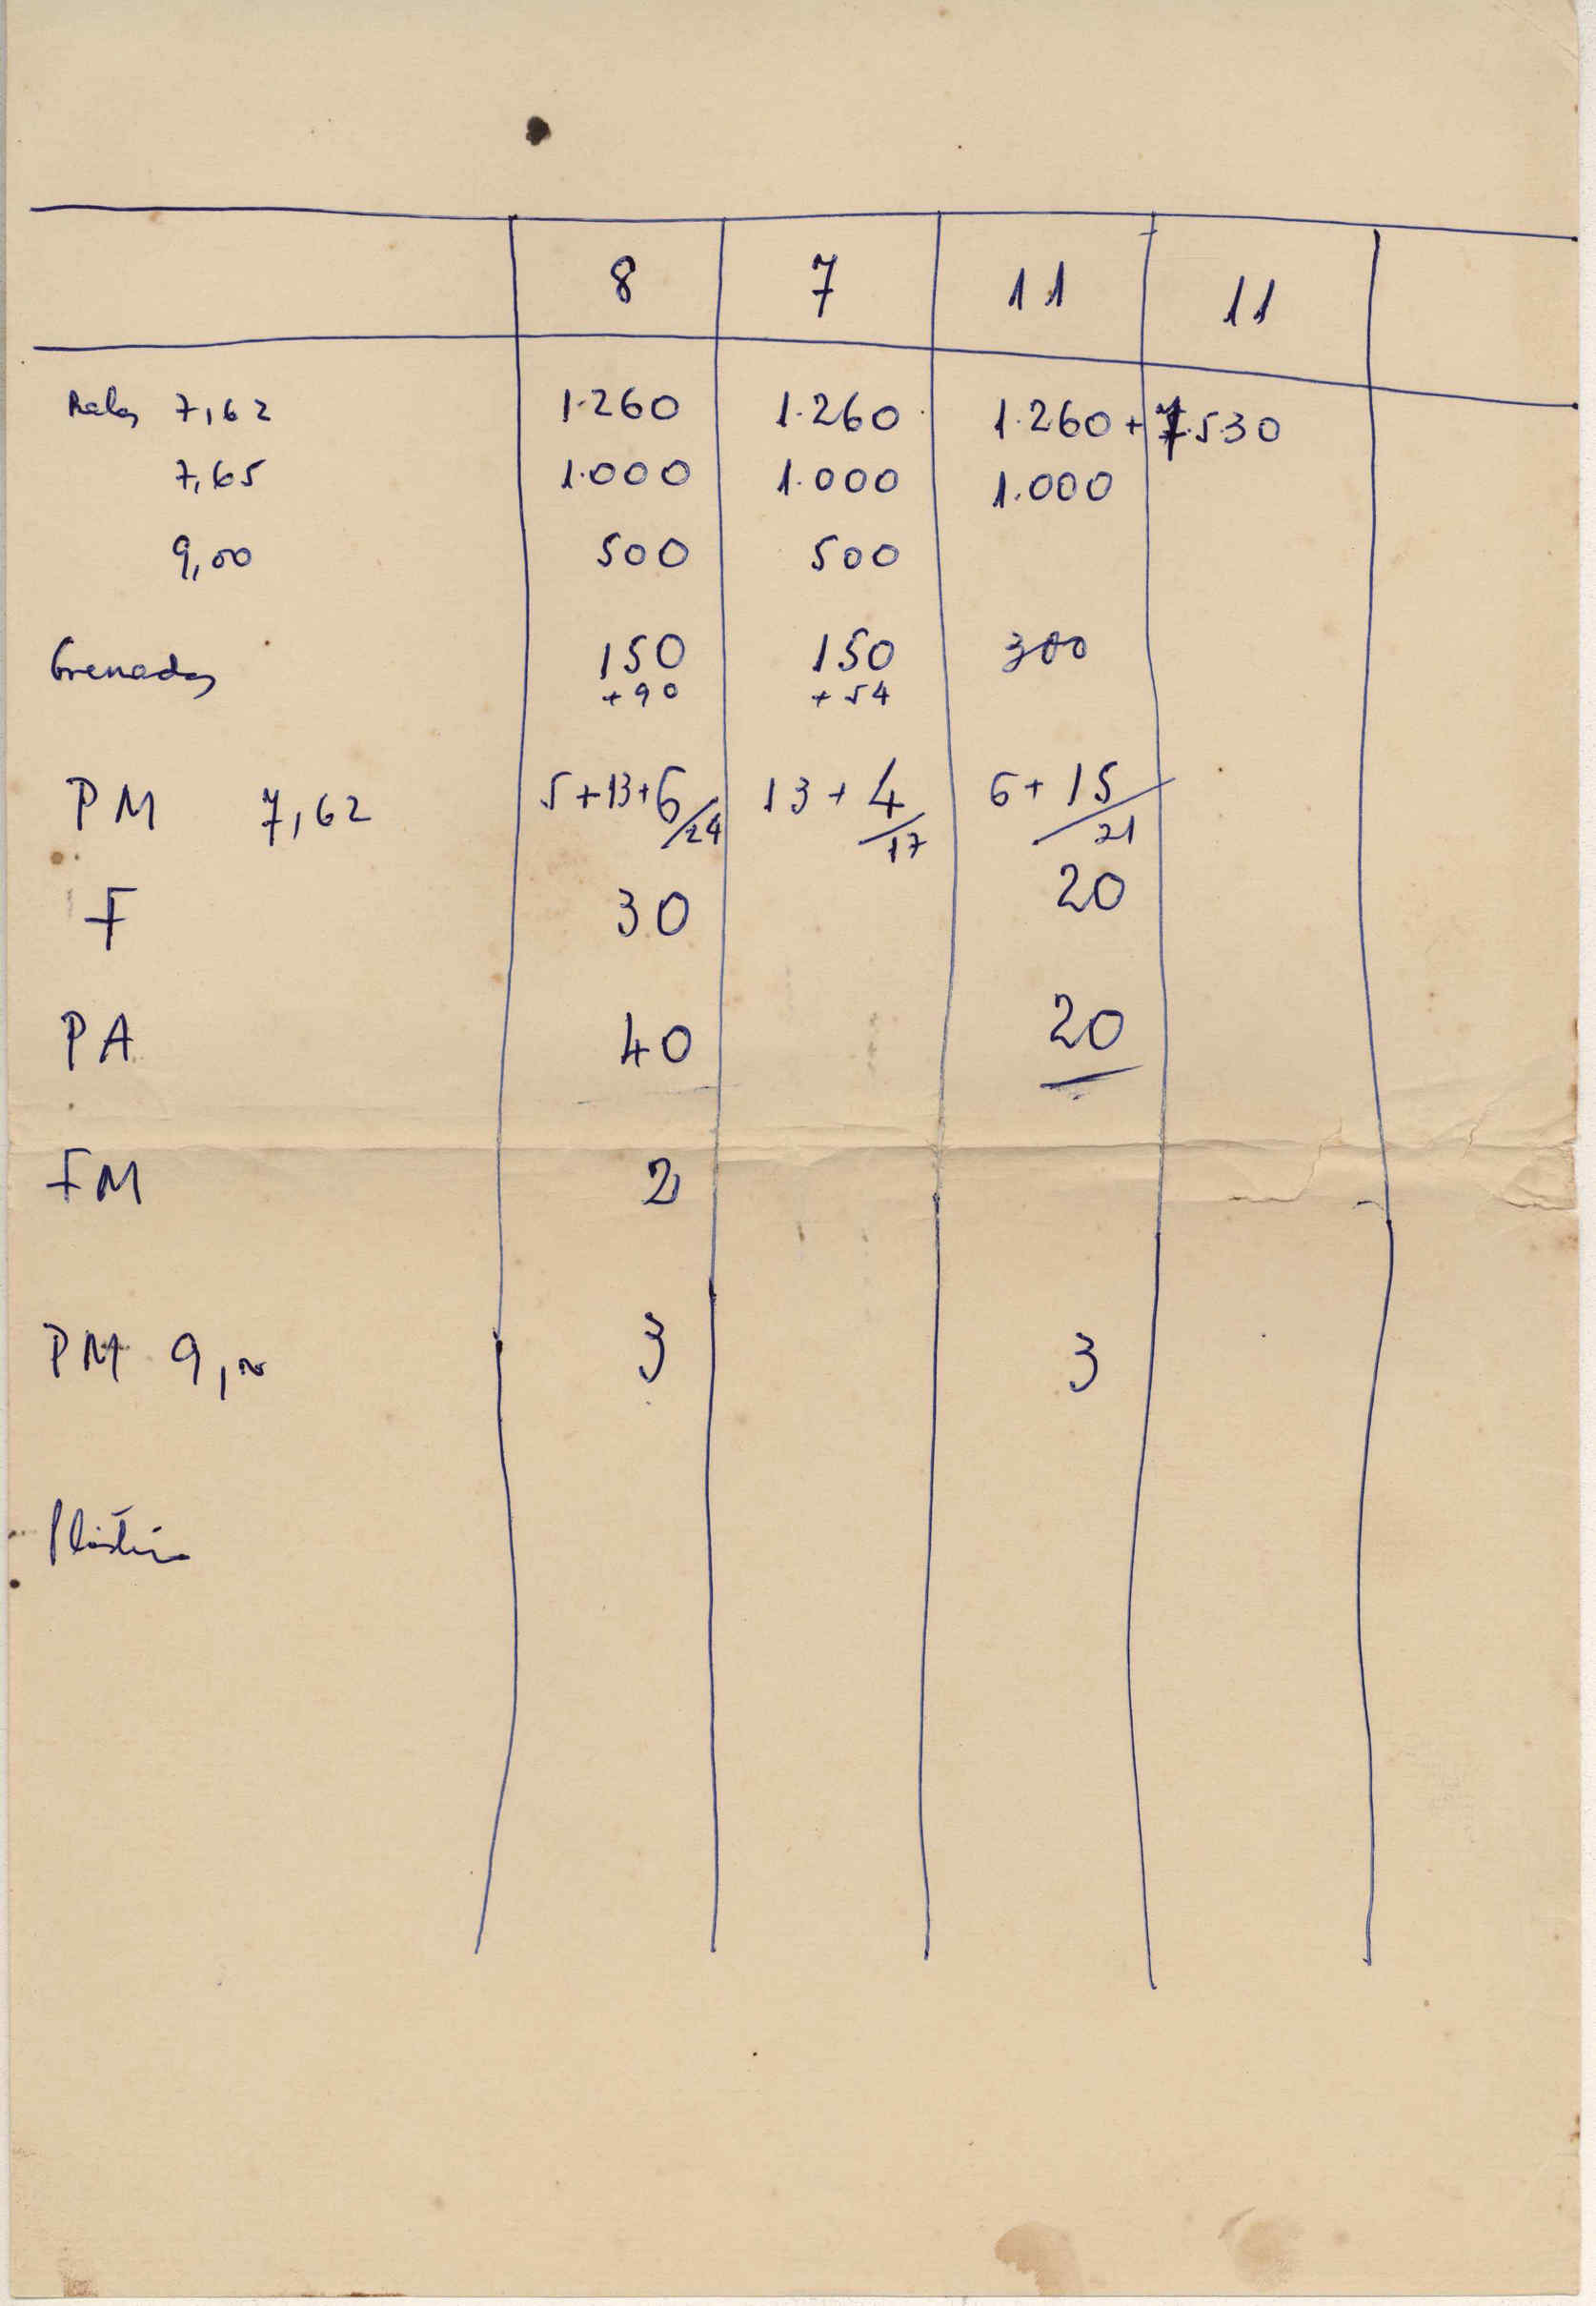 8 7 11 11
Balas 7,62 1.260 1.260 1.260 + 7.530
7,65 1.000 1.000 1.000
9,00 500 500
Grenadas 150 150 300
+90 +54
PM 7,62 5+13+6/24 13+4/17 6+15/21
F 30 20
PA 40 20
FM 2
PM 9,00 3 3
Plástico